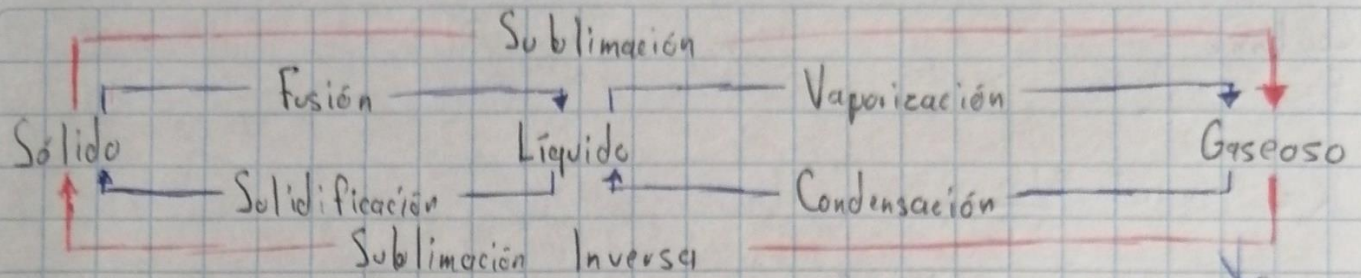 Sublimación
Fusión Vaporización
Sólido Líquido Gaseoso
Solidificación Condensación
Sublimación Inversa